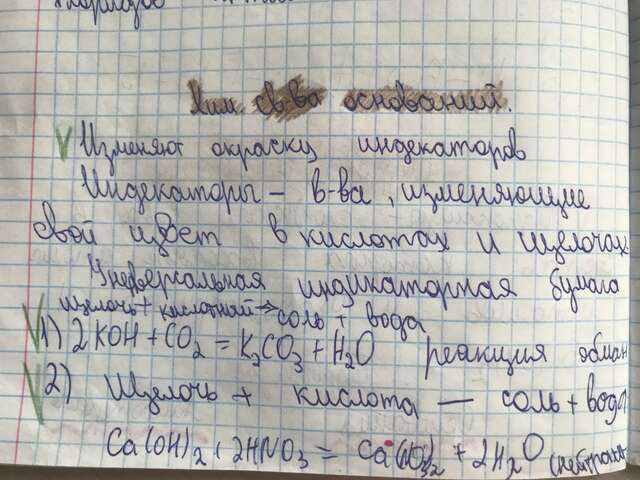 Хим. св-ва оснований.
Изменяют окраску индекаторов
Индекаторы – в-ва, изменяющие
свой цвет в кислотах и щелочах
Универсальная индикаторная бумага
щелочь + кислотный → соль + вода
1) 2KOH + CO2 = K2CO3 + H2O реакция обмен
2) Щелочь + кислота — соль + вода
Ca(OH)2 + 2HNO3 = Ca(NO3)2 + 2H2O